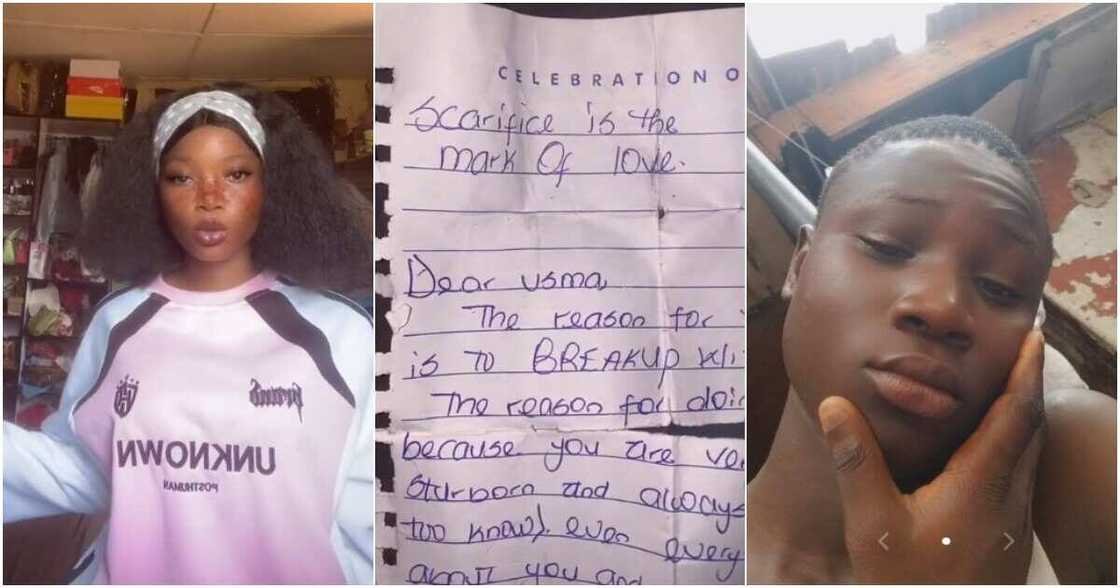 UNKNOWN
POSTHUMAN
CELEBRATION O
Scarifice is the
mark Of love.
Dear usma,
The reason for
is to BREAKUP
The reason for doi
because you are ve
Sturborn and always
too know). even every
about you and